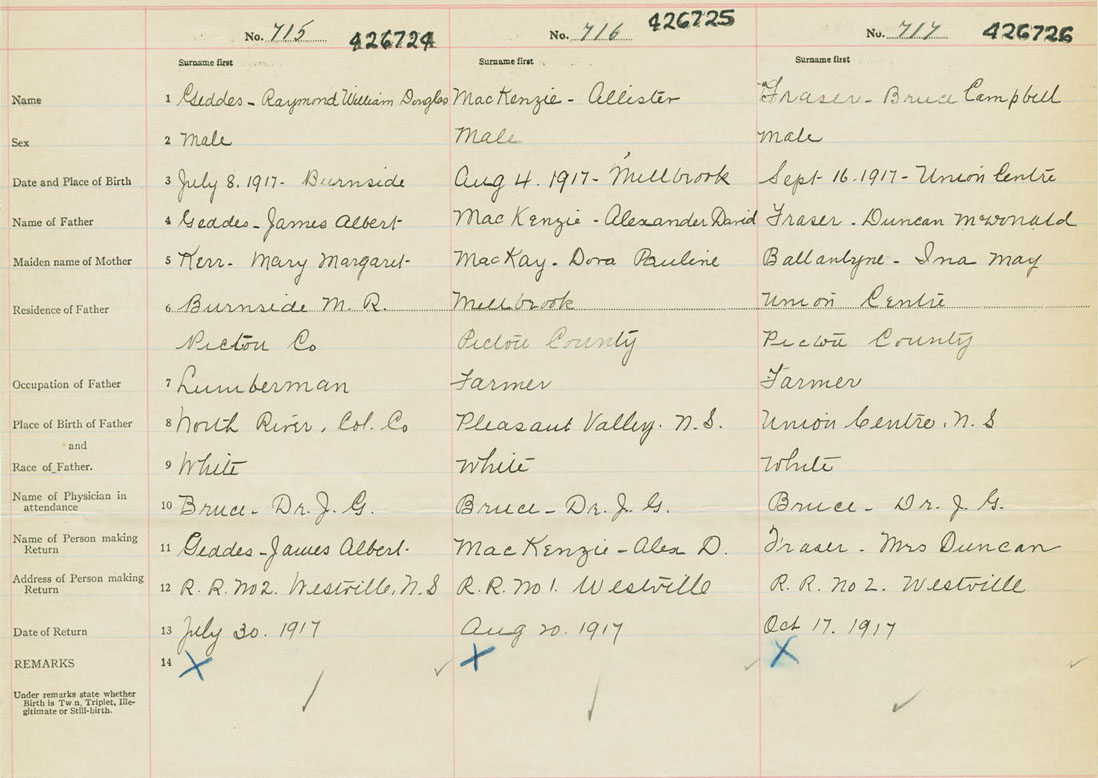 No. 715 426724 No. 716 426725 No. 717 426726
Surname first Surname first Surname first
Name 1 Geddes - Raymond William Douglas MacKenzie - Allister Fraser - Bruce Campbell
Sex 2 Male Male Male
Date and Place of Birth 3 July 8. 1917 - Burnside Aug 4. 1917 - Millbrook Sept 16. 1917 - Union Centre
Name of Father 4 Geddes - James Albert MacKenzie - Alexander David Fraser - Duncan McDonald
Maiden name of Mother 5 Kerr - Mary Margaret MacKay - Dora Pauline Ballantyne - Ina May
Residence of Father 6 Burnside M. R. Millbrook Union Centre
Pictou Co Pictou County Pictou County
Occupation of Father 7 Lumberman Farmer Farmer
Place of Birth of Father 8 North River, Col. Co Pleasant Valley. N.S. Union Centre, N.S
and
Race of Father. 9 White White White
Name of Physician in
attendance 10 Bruce - Dr. J. G. Bruce - Dr. J. G. Bruce - Dr. J. G.
Name of Person making
Return 11 Geddes - James Albert - MacKenzie - Alex D. Fraser - Mrs Duncan
Address of Person making
Return 12 R. R. No 2. Westville, N.S R. R. No 1. Westville R. R. No 2. Westville
Date of Return 13 July 30. 1917 Aug 20. 1917 Oct 17. 1917
REMARKS 14 X X X
Under remarks state whether
Birth is Twn, Triplet, Ille-
gitimate or Still-birth.